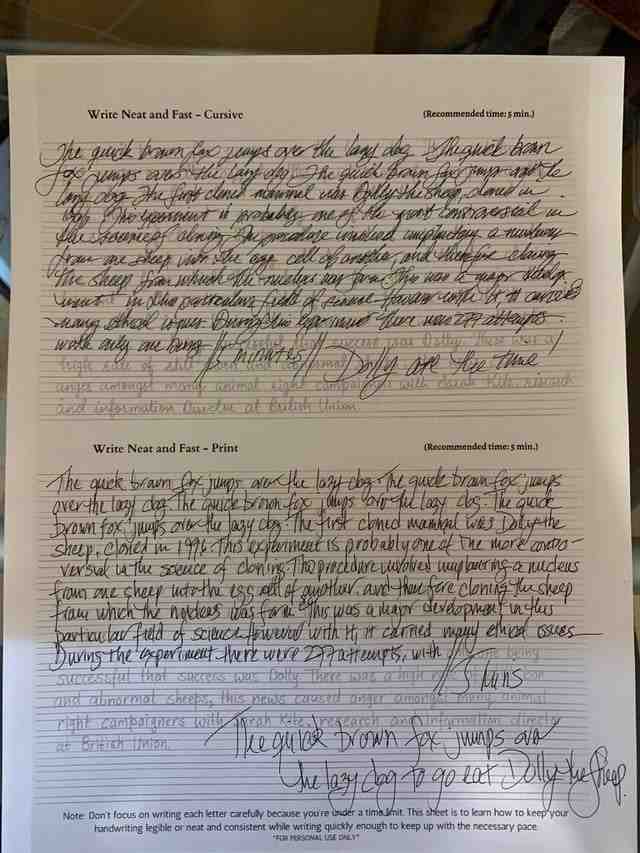 Write Neat and Fast – Cursive (Recommended time: 5 min.)
The quick brown fox jumps over the lazy dog The quick brown
fox jumps over the lazy dog. The quick brown fox jumps over the
lazy dog The first cloned mammal was Dolly the sheep, cloned in
is probably one of the most controversial in
the science of cloning. The procedure involved a
from one sheep into the egg cell of another, and therefore cloning
the sheep from which the nucleus was from This was a major
in this particular field of science with it, it carried
many ethical issues. During this experiment there were 277 attempts
with only one being // 5 minutes // Dolly ate the time
high rate of still born and abnormal
anger amongst many animal right campaigners with Sarah Kite, research
and information Director at British Union.
Write Neat and Fast – Print (Recommended time: 5 min.)
The quick brown fox jumps over the lazy dog. The quick brown fox jumps
over the lazy dog. The quick brown fox jumps over the lazy dog. The quick
brown fox jumps over the lazy dog. The first cloned mammal was Dolly the
sheep, cloned in 1996. This experiment is probably one of the more contro-
versial in the science of cloning. The procedure involved a nucleus
from one sheep into the egg cell of another, and therefore cloning the sheep
from which the nucleus was form This was a major development in this
particular field of science however with it, it carried many ethical issues
During the experiment there were 277 attempts, with // being
successful that success was Dolly There was a high
and abnormal sheeps, this news caused anger amongst many animal // 5 mins
right campaigners with Sarah Kite, research and information director
at British Union.
The quick brown fox jumps over
the lazy dog to go eat Dolly the Sheep.
Note: Don't focus on writing each letter carefully because you're under a time limit. This sheet is to learn how to keep your
handwriting legible or neat and consistent while writing quickly enough to keep up with the necessary pace.
*FOR PERSONAL USE ONLY*